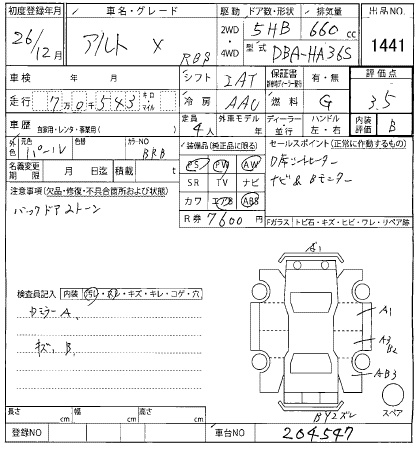 初度登録年月 車名・グレード 駆動 ドア数・形状 排気量 出品NO
26/12月 アルト X 2WD 4WD 5HB 660cc 1441
RBS 型式 DBA-HA36S
車検 年 月 シフト IAT 保証書 有・無 評価点
走行 7万0千543キロ マイル 冷房 AAC 燃料 G 3.5
車歴 自家用・レンタ・事業用( ) 定員 4人 外車モデル 年 ディーラー 並行 ハンドル 左・右 内装評価 B
外色 元色 パール 色替 カラーNO BRB
装備品(純正品に限る) セールスポイント(正常に作動するもの)
名義変更期限 月 日迄 積載 t
PS PW AW
SR TV ナビ
カワ エアB ABS
R券 7600円
D席シートヒーター
ナビ&Bモニター
注意事項(欠品・修復・不具合箇所および状態)
バックドア2トーン
Fガラス トビ石・キズ・ヒビ・ワレ・リペア跡
検査員記入 内装 汚レ・スレ・キズ・キレ・コゲ・穴
ロミラーA
キズ B
A1
A1
A3
B2
AB3
スペア
BY2ズレ
長さ cm 幅 cm 高さ cm
登録NO 車台NO 204547